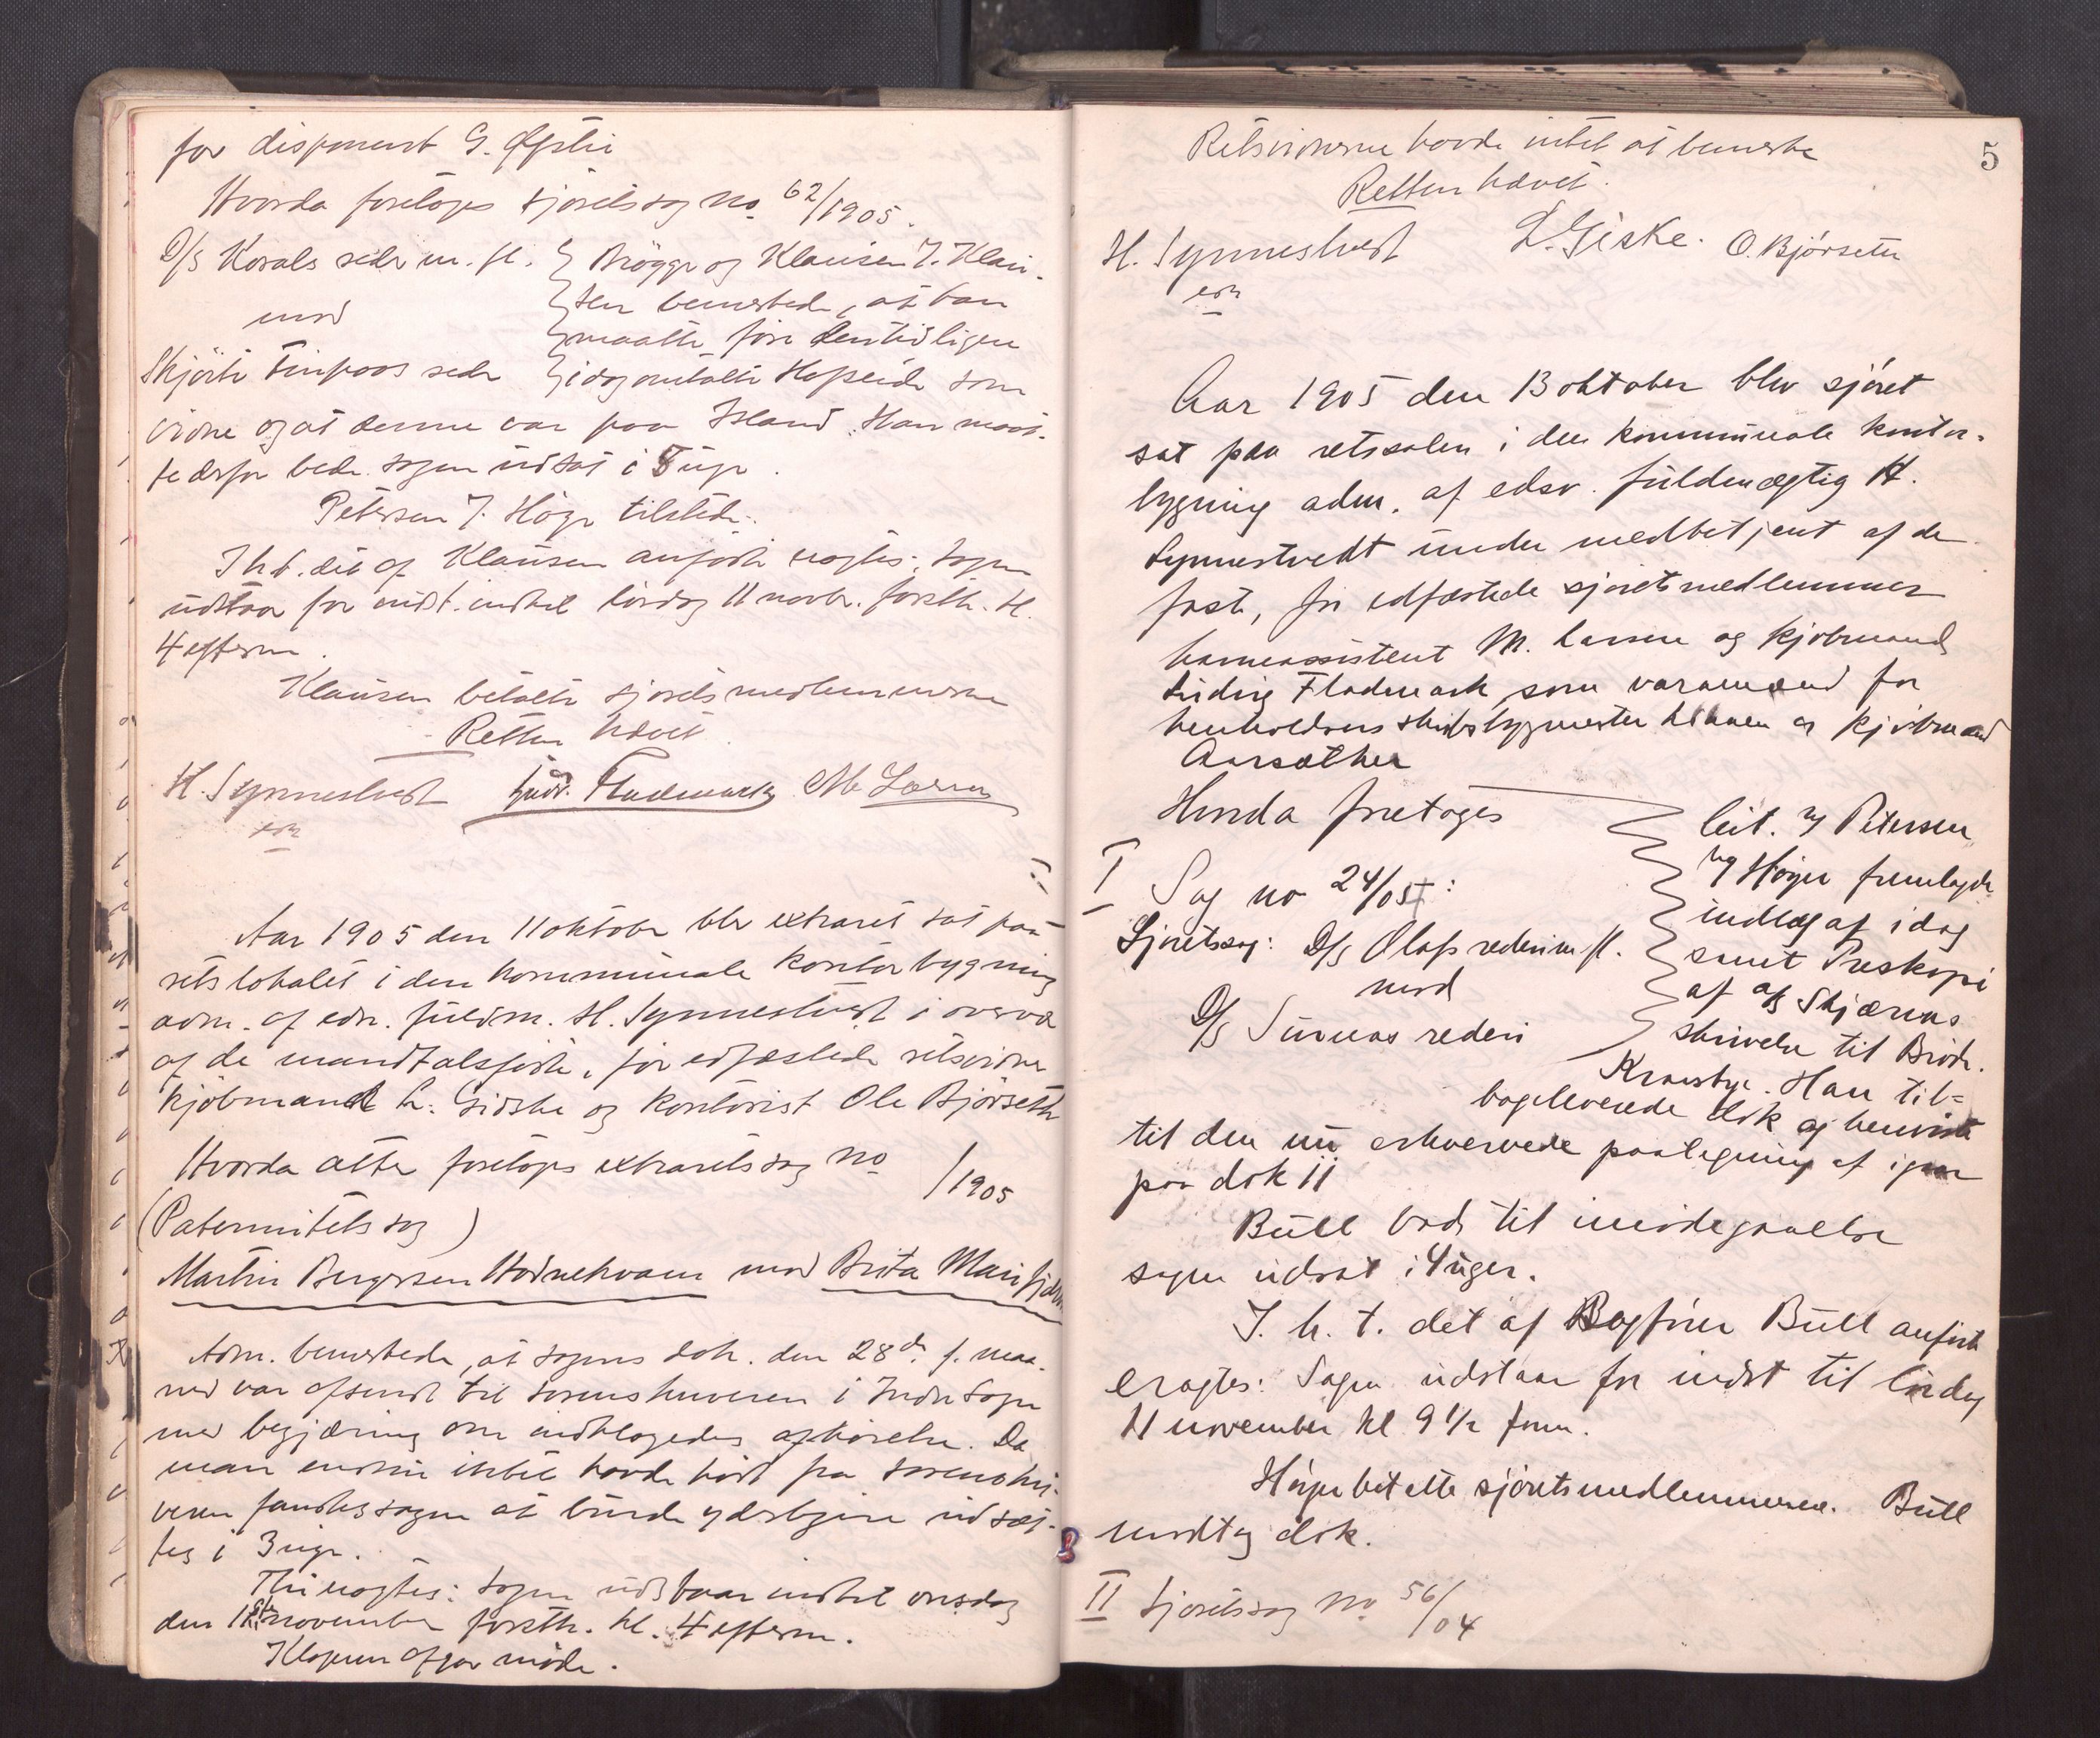 for disponent G.
Hvorda foretoges sjöretssag No 62/1905.
D/S Korals rederi m. fl.
mod
Skjöite Finpaos rederi
Brögger og Klausen J. Klau-
sen bemerkede, at han
maatte före den tidligere
idag omtalte Hopseide som
vidne og at denne var paa Island. Han maat-
te derfor bede sagen udsat i 5 uger.
Petersen J. Höger tilstede.
I h.t. det af Klausen anförte eragtes: Sagen
udstaar for indst. indtil lördag 11 novbr. förstk. kl.
4 efterm.
Klausen betalte sjöretsmedlemmerne
Retten hævet.
H. Synnestvedt Ludv. Flademark M. Larsen
edsv
Aar 1905 den 11 oktober blev extraret sat paa
retslokalet i den kommunale kontorbygning
adm. af edsv. fuldm. H. Synnestvedt i overvær
af de mandtalsförte, för edfæstede retsvidner
kjöbmand L. Gidske og kontorist Ole Björseth
Hvorda atter foretoges extraretssag No /1905
(Paternitetssag)
Martin Bergersen Hodnekvam mod Brita Mari
Adm. bemerkede, at sagens dok. den 28de f. maa-
ned var afsendt til sorenskriveren i Indre Sogn
med begjæring om indklagedes afhörelse. Da
man endnu intet havde hört fra sorenskri-
veren fandtes sagen at burde yderligere udsæt-
tes i 3 uger.
Thi eragtes: Sagen udstaar indtil onsdag
den november förstk. kl. 4 efterm.
Klageren afgav möde.
5
Retsvidnerne havde intet at bemerke
Retten hævet.
H. Synnestvedt L. Giske. O. Björseth
edsv
Aar 1905 den 13 oktober blev sjöret
sat paa retssalen i den kommunale kontor-
bygning adm. af edsv. fuldmægtig H.
Synnestvedt under medbetjent af de
faste, för edfæstede sjöretsmedlemmer
havneassistent M. Larsen og kjöbmand
Ludvig Flademark som varamænd for
henholdsvis skibsbygmester og kjöbmand
Aarsæther
Hvorda foretoges
I Sag no 24/05:
Sjöretssag: D/S Olafs rederi m fl.
mod
D/S Sunnas rederi
Cit. v/ Petersen
v/ Höger fremlagde
indlæg af idag
samt Preskopi
af a/s Skjærnas
skrivelse til Brödr.
Kraasbye. Han til-
bageleverede dok og henviste
til den nu erhvervede paategning af igaar
paa dok 11
Bull bad til imödegaaelse
sagen udsat i 4 uger.
I. h. t. det af Bogförer Bull anförte
eragtes: Sagen udstaar for indst til lördag
11 november kl 9 1/2 form.
Höger betalte sjöretsmedlemmerne. Bull
modtog dok.
II Sjöretssag No 56/04